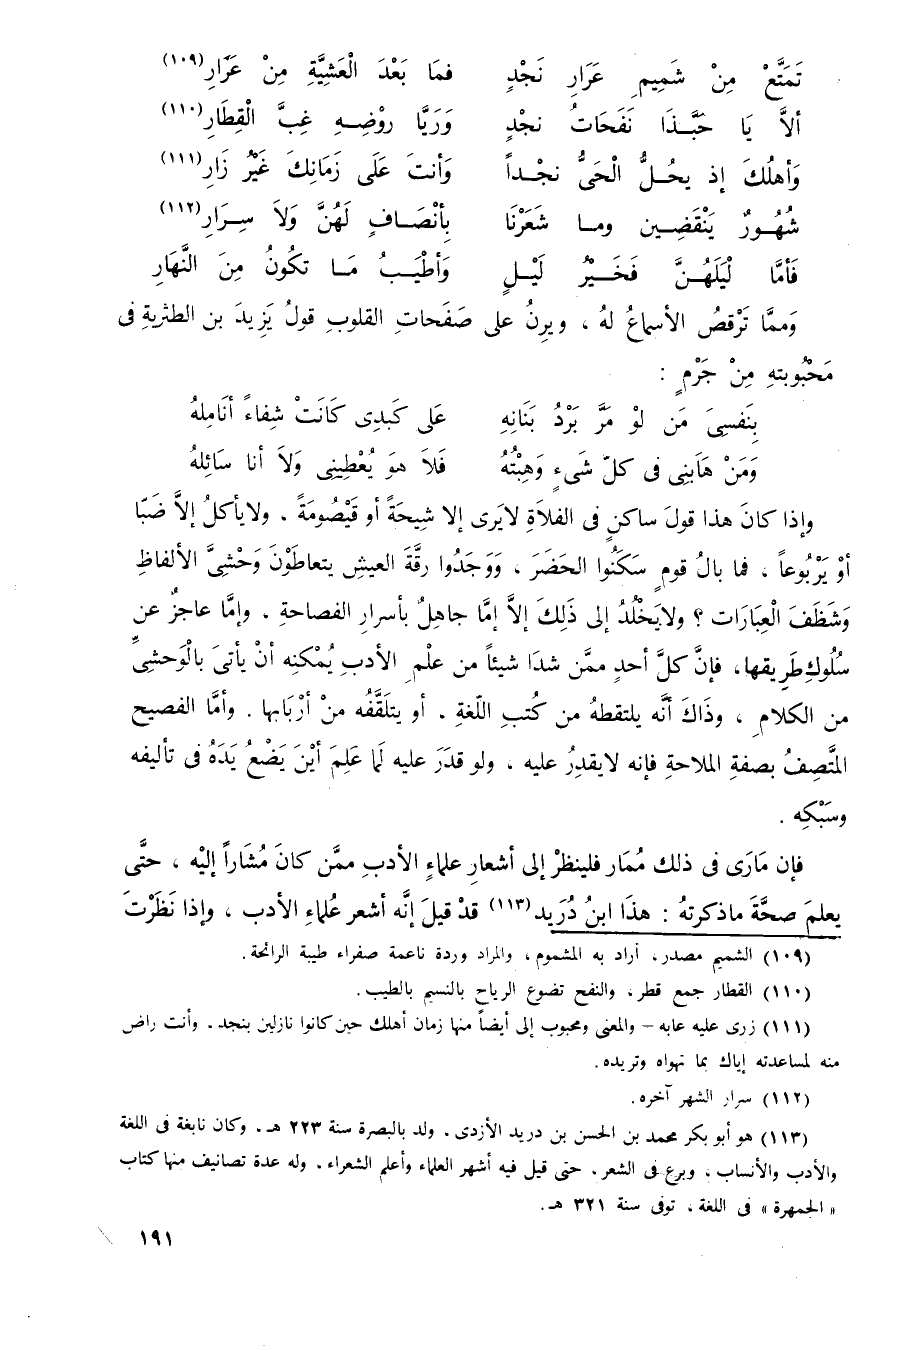 تَمَتَّعْ مِنْ شَمِيمِ عَرَارِ نَجْدٍ فمَا بَعْدَ الْعَشِيَّةِ مِنْ عَرَارِ(١٠٩)
ألاَّ يَا حَبَّـذَا نَفَحَاتُ نجْدٍ وَرَيَّا روْضِـهِ غِبَّ الْقِطَارِ(١١٠)
وَأهلُكَ إذ يحُـلُّ الْحَىُّ نجْـداً وَأنتَ عَلَى زَمَانِكَ غَيْرُ زَارِ(١١١)
شُهُـورٌ يَنْقَضِـين ومـا شَعَرْنَا بأَنْصَـافٍ لَهُنَّ وَلاَ سِـرَارِ(١١٢)
فَأمَّا لَيْلَهُـنَّ فَخَـيْرُ لَيْـلٍ وَأطْيَـبُ مَـا تكُونُ مِنَ النَّهَارِ
وَممَّا تَرْقصُ الأسماعُ لهُ ، ويرنُ على صَفَحاتِ القلوبِ قولُ يَزِيدَ بن الطثريةِ فى
مَحْبُوبتهِ مِنْ جَرْمٍ :
بِنَفسِىَ مَن لوْ مَرَّ بَرْدُ بَنَانِهِ عَلى كَبَدِى كَانَتْ شفاءً أنَامِلهُ
وَمَنْ هَابَنِى فى كلّ شَىءٍ وَهِبْتُهُ فَلاَ هوَ يُعْطِينِى وَلاَ أنا سَائلهُ
وإذا كانَ هذا قولَ ساكنٍ فى الفلاَةِ لايَرى إلا شيحَةً أو قَيْصُومَةً . ولايأكلُ إلاَّ ضَبّا
أوْ يَرْبُوعاً ، فما بالُ قومٍ سَكَنُوا الحَضَرَ ، وَوَجَدُوا رقَّةَ العيشِ يتعاطَوْنَ وَحْشِىَّ الألفاظِ
وَشَظَفَ الْعِبَارَات ؟ ولايَخْلُدُ إلى ذَلِكَ إلاَّ إمَّا جاهِلُ بأسرارِ الفصاحةِ . وإمَّا عاجزٌ عن
سُلُوكِ طَرِيقها، فإنَّ كلَّ أحدٍ ممَّن شدَا شيئاً من علْمِ الأدبِ يُمْكنِه أنْ يأتىَ بالْوَحشِىِّ
من الكلامِ ، وذَاكَ أنَّه يلتقطهُ من كتُبِ اللّغةِ . أو يتَلَقَّفُه منْ أرْبَابها . وأمَّا الفصيح
المتَّصِفُ بصفةِ الملاحةِ فإنه لايقدِرُ عليه ، ولو قدَرَ عليه لَما عَلِمَ أيْنَ يَضَعُ يَدَهُ فى تأليفه
وسَبْكِه .
فإن مَارَى فى ذلك مُمَار فلينظرْ إلى أشعارِ علماءِ الأدبِ ممَّن كانَ مُشَاراً إليْه ، حتَّى
يعلمَ صحَّةَ ماذكرتهُ : هذَا ابنُ دُرَيد(١١٣) قدْ قيلَ إنَّه أشعر عُلماءِ الأدب ، وإذا نَظَرْتَ
(١٠٩) الشميم مصدر، أراد به المشموم، والمراد وردة ناعمة صفراء طيبة الرائحة.
(١١٠) القطار جمع قطر، والنفح تضوع الرياح بالنسيم بالطيب.
(١١١) زرى عليه عابه – والمعنى ومحبوب إلى أيضاً منها زمان أهلك حين كانوا نازلين بنجد. وأنت راض
منه لمساعدته إياك بما تهواه وتريده.
(١١٢) سرار الشهر آخره.
(١١٣) هو أبو بكر محمد بن الحسن بن دريد الأزدى. ولد بالبصرة سنة ٢٢٣ هـ. وكان نابغة فى اللغة
والأدب والأنساب ، وبرع فى الشعر. حتى قيل فيه أشهر العلماء وأعلم الشعراء. وله عدة تصانيف منها كتاب
« الجمهرة » فى اللغة ، توفى سنة ٣٢١ هـ.
١٩١